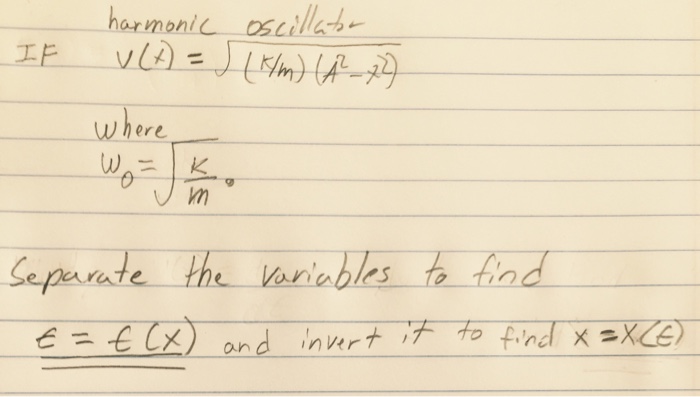 harmonic oscillator
IF v(x) = √(k/m)(A²-x²)
where
ω₀ = √k/m.
Separate the variables to find
t = t(x) and invert it to find x = x(t)